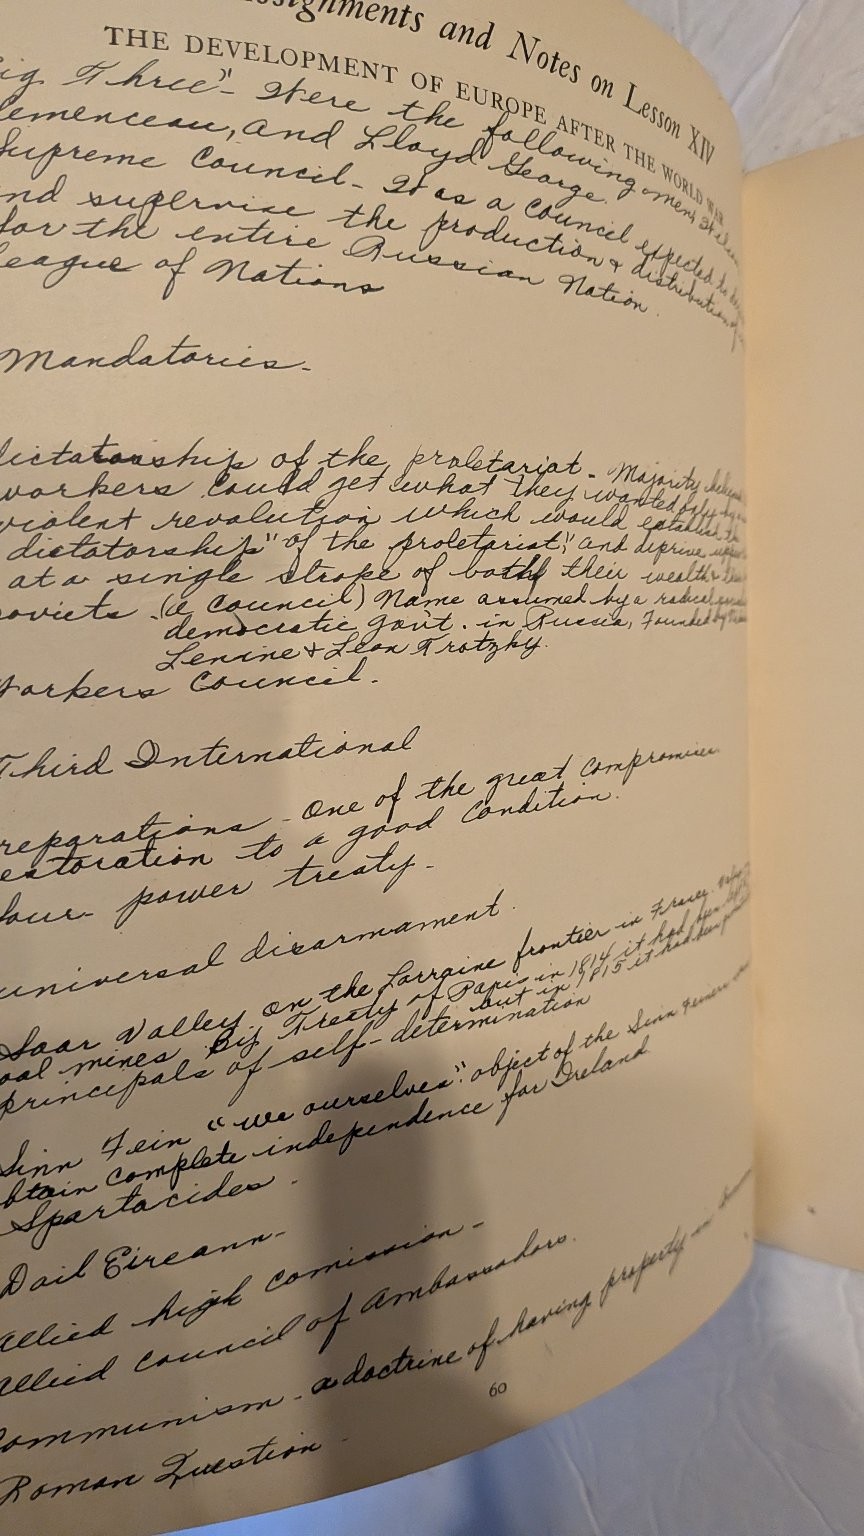 signments and Notes on Lesson XIV
THE DEVELOPMENT OF EUROPE AFTER THE WORLD WAR
ig Three" - Were the following men,
lemenceau, and Lloyd George.
Supreme Council - It as a council expected to
nd supervise the production & distribution of
for the entire Russian Nation.
League of Nations
Mandatories -
dictatorship of the proletariat - Majority
workers could get what they wanted only by
violent revolution which would establish the
dictatorship" of the proletariat," and deprive
at a single stroke of both their wealth &
soviets - (e council) Name assumed by a radical
democratic gov't. in Russia, Founded by
Lenine & Leon Trotzky.
Workers Council.
Third International
reparations - One of the great compromises
estoration to a good condition.
four - power treaty -
universal disarmament.
Saar Valley on the Lorraine frontier in France.
oal mines By Treaty of Paris in 1814 it had been
but in 1815 it had been
principals of self-determination
Sinn Fein "we ourselves". object of the Sinn Feiners was
btain complete independence for Ireland.
Spartacides -
Dail Eireann -
allied high comission -
allied council of Ambassadors.
Communism - a doctrine of having property in
60
Roman Question -